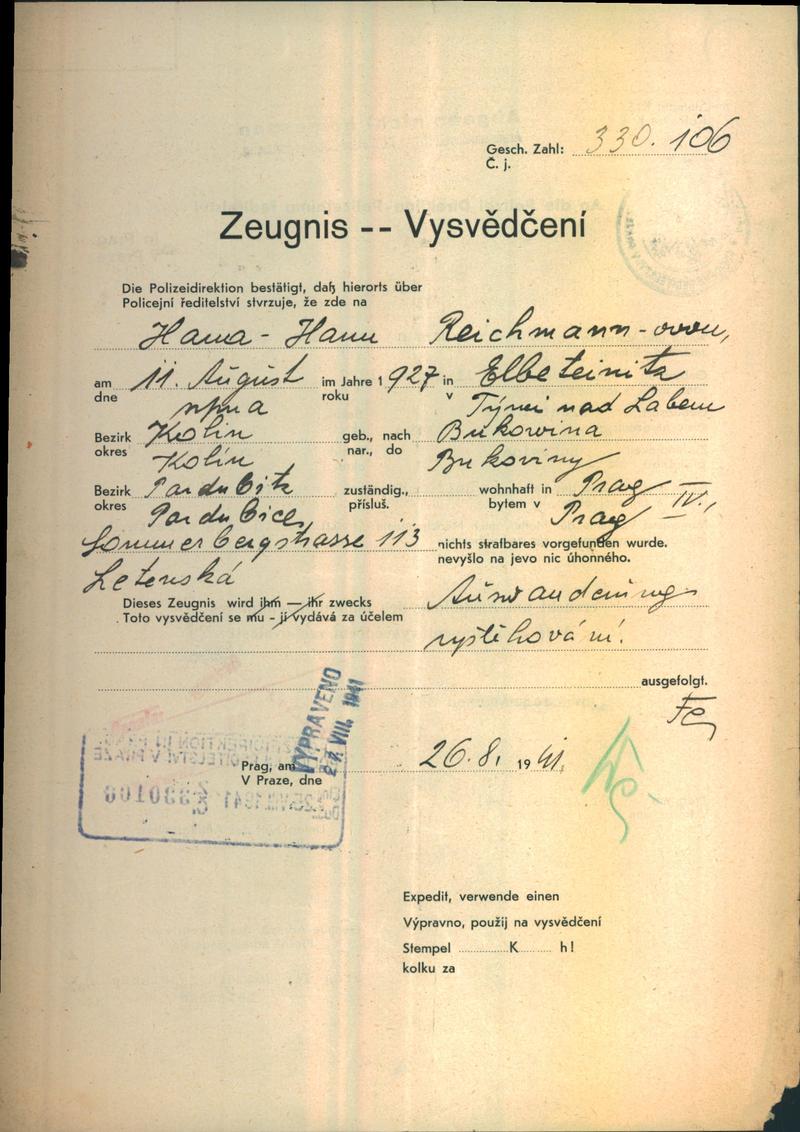 Gesch. Zahl: 330.106
Č. j.
Zeugnis -- Vysvědčení
Die Polizeidirektion bestätigt, daß hierorts über
Policejní ředitelství stvrzuje, že zde na
Hana - Hanu Reichmann-ovou,
am 11. August im Jahre 1927 in Elbeteinitz
dne srpna roku v Týnci nad Labem
Bezirk Kolin geb., nach Bukowina
okres Kolín nar., do Bukoviny
Bezirk Pardubitz zuständig., wohnhaft in Prag IV.,
okres Pardubice přísluš. bytem v Prag
Sommerbergstrasse 113 nichts strafbares vorgefunden wurde.
Letenská nevyšlo na jevo nic úhonného.
Dieses Zeugnis wird ihm — ihr zwecks Auswanderung
Toto vysvědčení se mu - jí vydává za účelem
vystěhování.
ausgefolgt.
VYPRAVENO
27. VIII. 1941
Prag, am 26.8. 1941.
V Praze, dne
330106
Expedit, verwende einen
Výpravno, použij na vysvědčení
Stempel K h!
kolku za